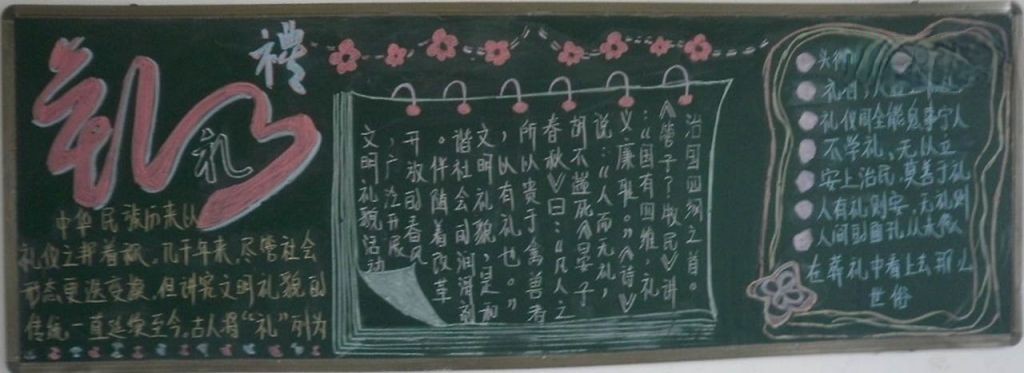 礼
禮
礼
中华民族历来以
礼仪之邦着称,几千年来,尽管社会
形态更迭变换,但讲究文明礼貌的
传统一直延续至今,古人将“礼”列为
治国四纲之首。
《管子?牧民》讲
:“国有四维,礼
义廉耻。”《诗》
说:“人而无礼,
胡不遄死《晏子
春秋》曰:“凡人之
所以贵于禽兽者
,以有礼也。”
文明礼貌,是和
谐社会的润滑剂
。伴随着改革
开放的春风
,广泛开展
文明礼貌活动
礼仪周全能息事宁人
不学礼、无以立
安上治民,莫善于礼
人有礼则安,无礼则
在葬礼中看上去那么
世俗